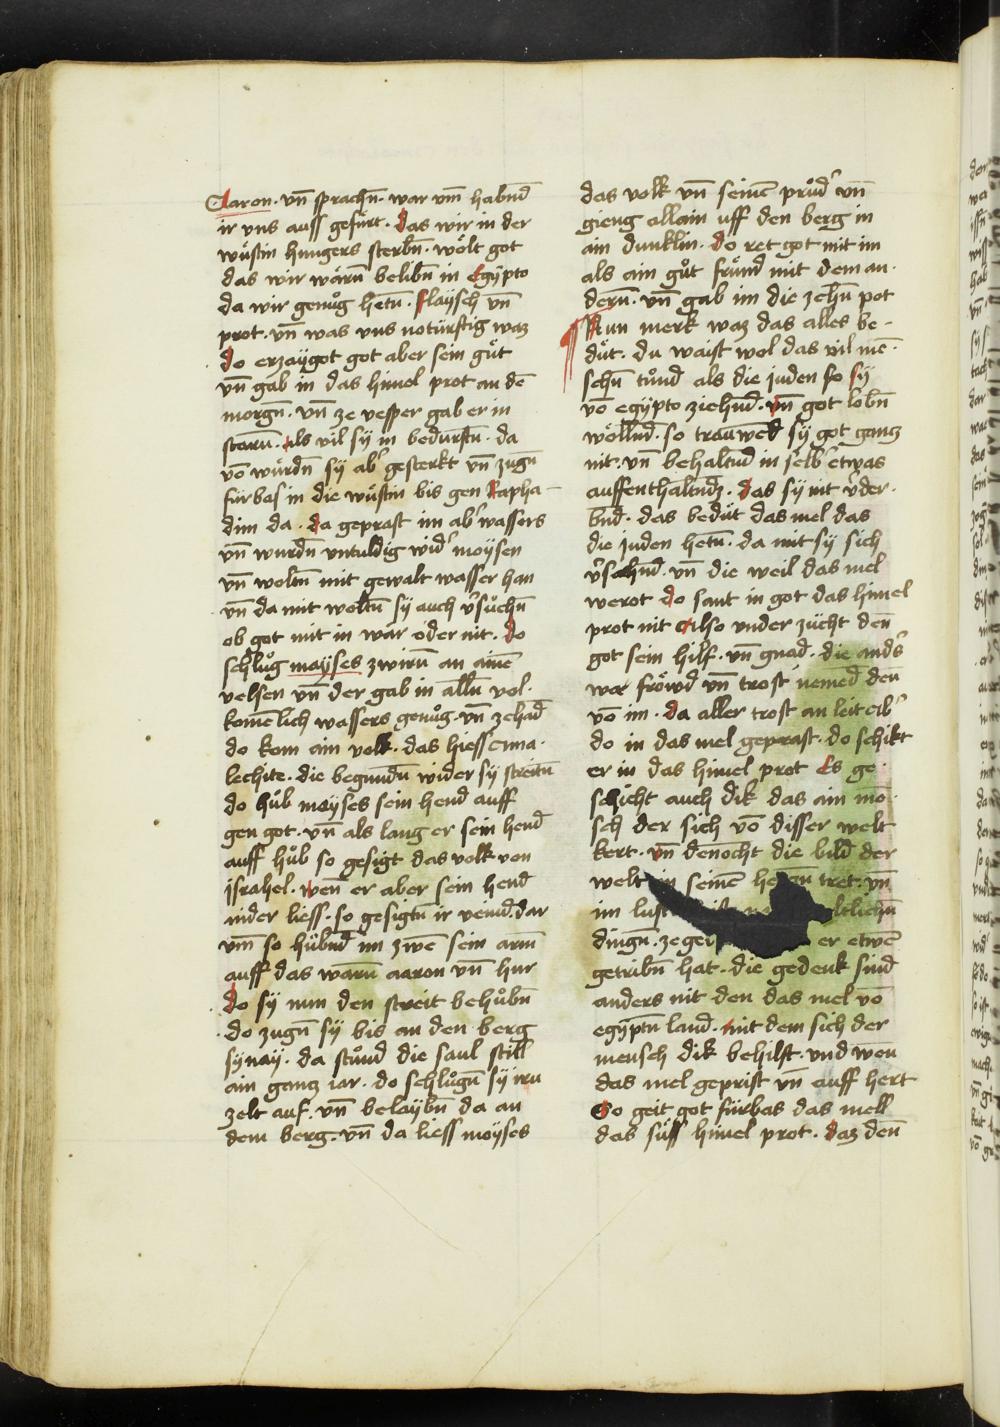 Aaron · vn̄ sprachn̄ · war vm̄ habnd̄
ir vns auss gefürt · das wir in der
wüstin hungers sterbn̄ · wölt got
das wir wärn̄ belibn̄ in Egÿpto
da wir genůg hetn̄ · flaÿsch vn̄
prot · vn̄ was vns notürftig waz
do erzaÿgot got aber sein gůt
vn̄ gab in das himel prot an dē
morgn̄ · vn̄ ze vesper gab er in
starn̄ · als vil sÿ in bedurftn̄ · da
vō wůrdn̄ sÿ ab' gesterkt vn̄ zugn̄
fürbas in die wüstin bis gen Rapha-
dim da · da geprast im ab' wassers
vn̄ wurdn̄ vntuldig wid' moÿsen
vn̄ woltn̄ mit gewalt wasser han
vn̄ da mit woltn̄ sÿ auch v'sůchn̄
ob got mit in wär oder nit · do
schlůg moÿses zwirn̄ an ainē
velsen vn̄ der gab in alln̄ vol·
komēlich wassers genůg · vn̄ zehad̄
do kom ain volk · das hiess Ama·
lechite · die begundn̄ wider sÿ streitn̄
do hůb moÿses sein hend auff
gen got · vn̄ als lang er sein hend̄
auff hůb so gesigt das volk von
jsrahel · wen̄ er aber sein hend
nider liess · so gesigtn̄ ir veind · dar
vm̄ so hůbnd̄ im zwē sein arm̄
auff das warn̄ aaron vn̄ hur
do sÿ nun den streit behůbn̄
do zugn̄ sÿ bis an den berg
sÿnaÿ · da stůnd die saul still
ain gancz iar · do schlůgn̄ sÿ iru
zelt auf · vn̄ belaÿbn̄ da an
dem berg · vn̄ da liess moÿses
das volk vn̄ seinē průd' vn̄
gieng allain uff den berg in
ain dunklin · do ret got mit im
als ain gůt fründ mit dem an·
dern̄ · vn̄ gab im die zehn̄ pot
Nun merk waz das alles be-
düt · du waist wol das vil mē·
schn̄ tůnd als die juden so sÿ
vō egÿpto ziehnd̄ · vn̄ got lobn̄
wöllnd̄ · so trauwed sÿ got gancz
nit · vn̄ behaltnd̄ in selb' etwas
auffenthaltndz · das sÿ nit v'der·
bnd̄ · das bedüt das mel das
die juden hetn̄ · da mit sÿ sich
v'sahnd̄ · vn̄ die weil das mel
werot do sant in got das himel
prot nit Also under zücht den̄
got sein hilf · vn̄ gnad · die and's
war fröwd vn̄ trost nemed den̄
vō im · da aller trost an leit Ab'
do in das mel geprast · do schikt
er in das himel prot Es ge·
schicht auch dik das ain mō·
sch der sich vō disser welt
kert · vn̄ dēnocht die bild der
welt in seinē herczn̄ tret · vn̄
im lust
dingn̄ · er etwē
getribn̄ hat · die gedenk sind
anders nit den das mel vō
egÿptn̄ land · mit dem sich der
mensch dik behilft · vnd wen̄
das mel geprist vn̄ auff hert
So geit got fürbas das mell
das süss himel prot · daz den̄